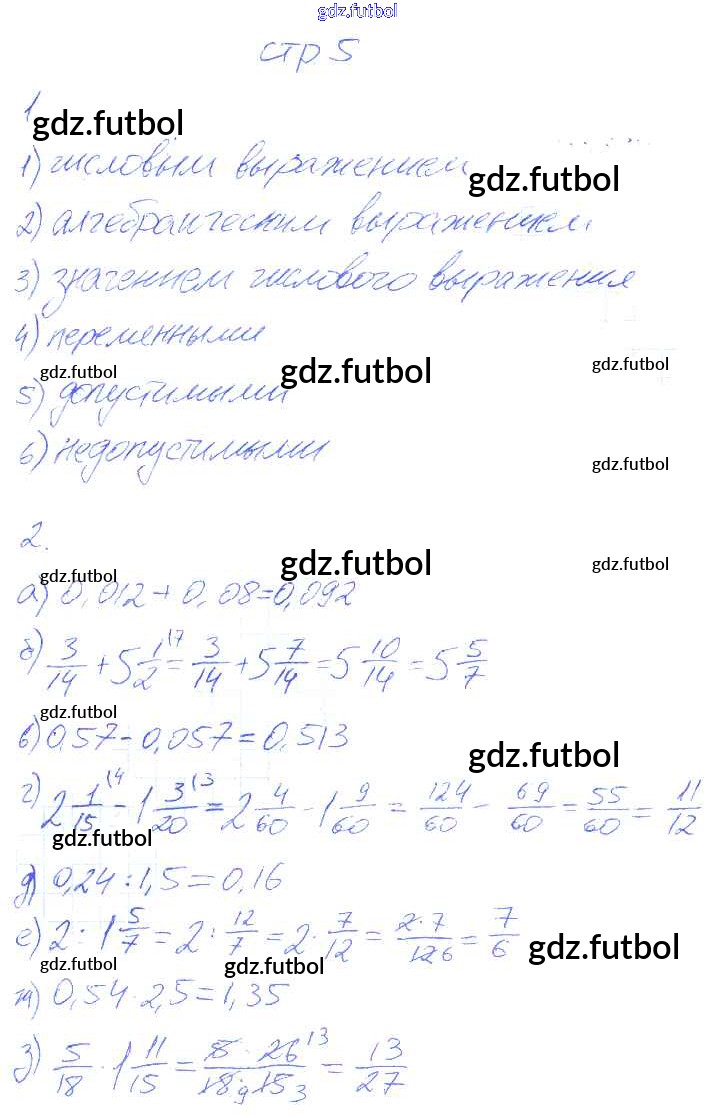 gdz.futbol
стр 5
1
gdz.futbol
1) числовым выражением
gdz.futbol
2) алгебраическим выражением
3) значением числового выражения
4) переменными
gdz.futbol gdz.futbol gdz.futbol
5) допустимыми
6) недопустимыми
gdz.futbol
2.
gdz.futbol gdz.futbol gdz.futbol
а) 0,012 + 0,08 = 0,092
б) 3/14 + 5 1/2 (7 = 3/14 + 5 7/14 = 5 10/14 = 5 5/7
gdz.futbol
в) 0,57 - 0,057 = 0,513
gdz.futbol
г) 2 1/15 (4 - 1 3/20 (3 = 2 4/60 - 1 9/60 = 124/60 - 69/60 = 55/60 = 11/12
gdz.futbol
д) 0,24 : 1,5 = 0,16
е) 2 : 1 5/7 = 2 : 12/7 = 2 · 7/12 = 2·7/12 6 = 7/6
gdz.futbol
gdz.futbol gdz.futbol
ж) 0,54 · 2,5 = 1,35
з) 5/18 · 1 11/15 = 5 · 26 13/18 9 15 3 = 13/27